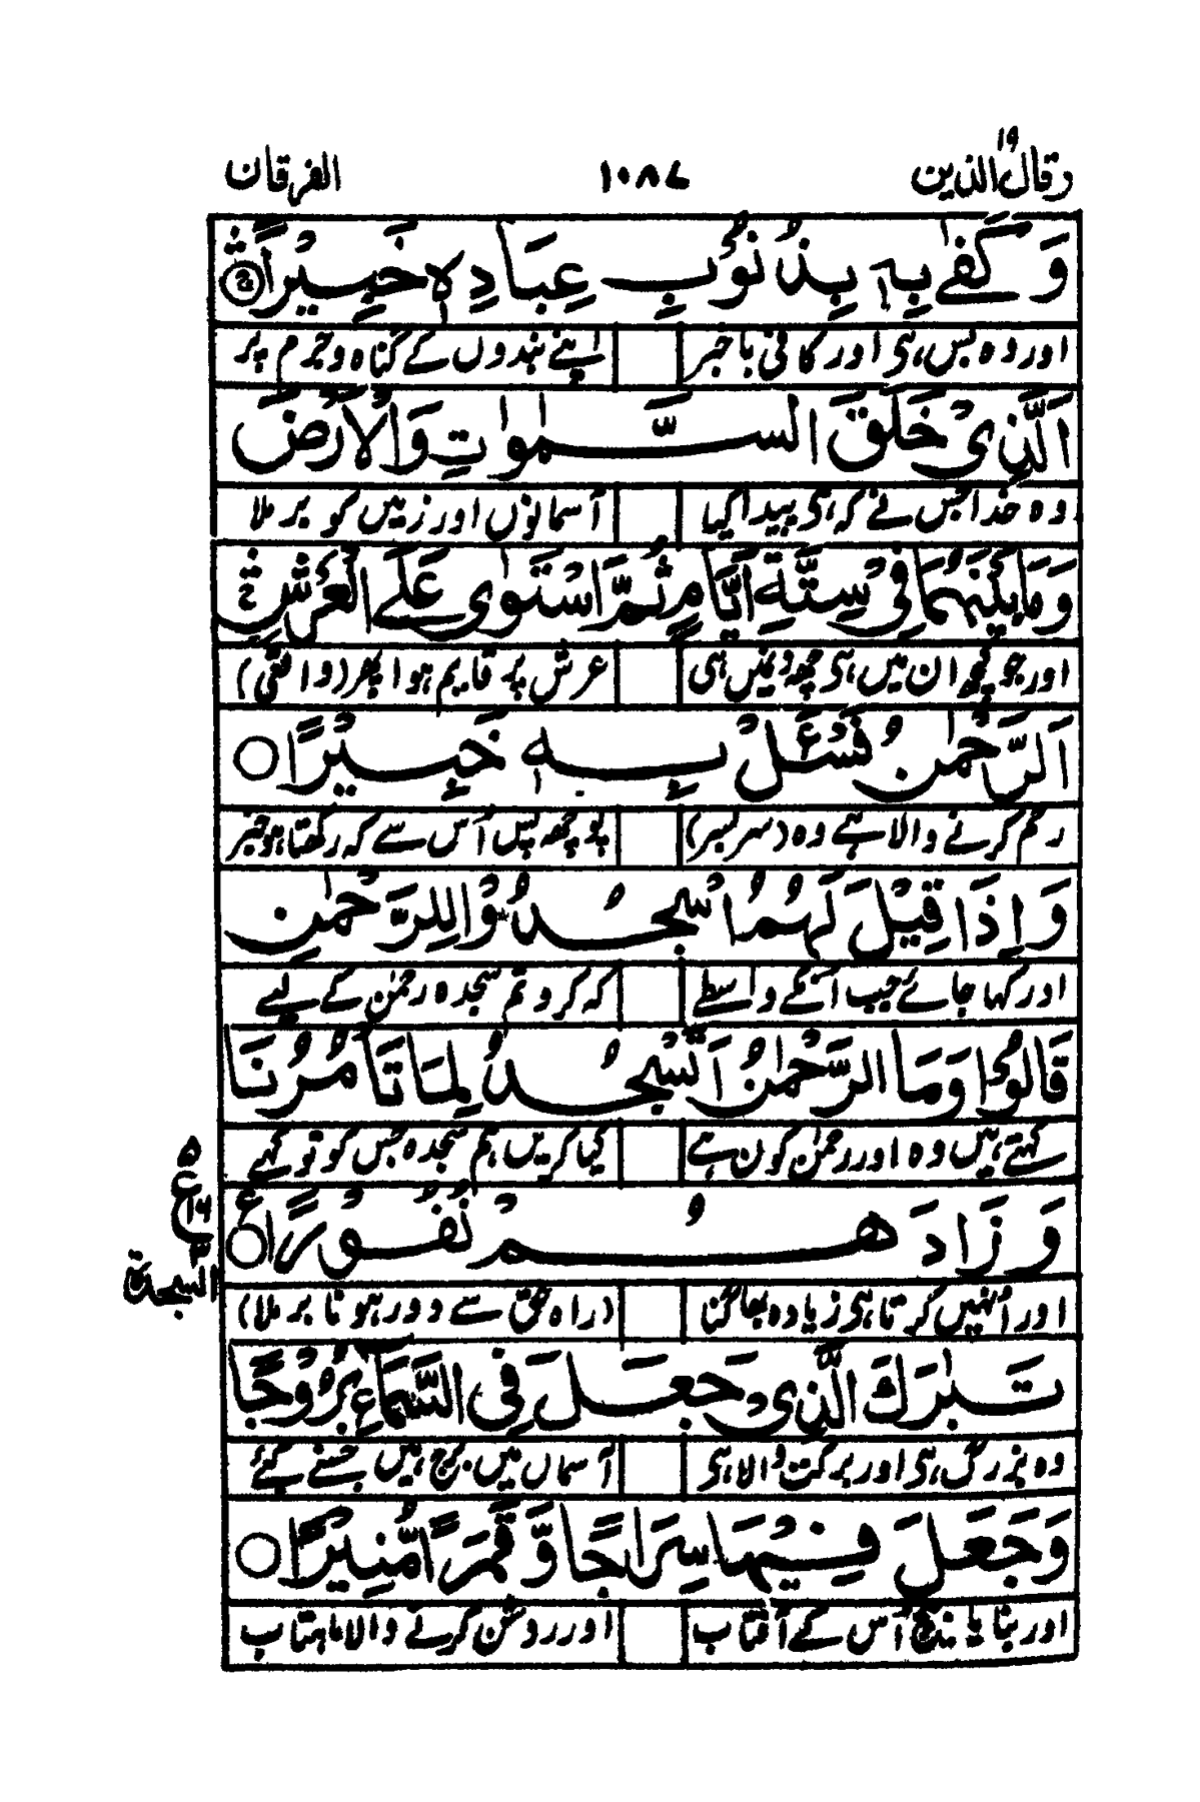 وقال الذین ۱۹ ۱۰۸۷ الفرقان
وَكَفٰى بِهٖ بِذُنُوْبِ عِبَادِهٖ خَبِيْرًا
اور وہ بس ہی اور کافی باخبر اپنے بندوں کے گناہ و جرم پر
الَّذِيْ خَلَقَ السَّمٰوٰتِ وَالْاَرْضَ
وہ خدا جس نے کہ ہی پیدا کیا آسمانوں اور زمیں کو بر ملا
وَمَا بَيْنَهُمَا فِيْ سِتَّةِ اَيَّامٍ ثُمَّ اسْتَوٰى عَلَى الْعَرْشِ
اور جو کچھ ان میں ہی چھ دنیں ہی عرش پر قایم ہوا پھر (واقعی)
اَلرَّحْمٰنُ فَسْـَٔلْ بِهٖ خَبِيْرًا
رحم کرنے والا ہے وہ (سر بسر) پوچھ پس اُس سے کہ رکھتا ہو خبر
وَاِذَا قِيْلَ لَهُمُ اسْجُدُوْا لِلرَّحْمٰنِ
اور کہا جائے جب انکے واسطے کہ کرو تم سجدہ رحمٰن کے لیے
قَالُوْا وَمَا الرَّحْمٰنُ اَنَسْجُدُ لِمَا تَاْمُرُنَا
کہتے ہیں وہ اور رحمٰن کون ہے کیا کریں ہم سجدہ جس کو تو کہے
وَزَادَهُمْ نُفُوْرًا
۵ ع ۱۶ السجدة
اور اُنہیں کرتا ہی زیادہ بھاگنا (راہ حق سے دور ہونا بر ملا)
تَبٰرَكَ الَّذِيْ جَعَلَ فِي السَّمَآءِ بُرُوْجًا
وہ بزرگ ہی اور برکت والا ہی آسماں میں برج ہیں جسنے کئے
وَجَعَلَ فِيْهَا سِرَاجًا وَّقَمَرًا مُّنِيْرًا
اور بنایا بیچ اُس کے آفتاب اور روشن کرنے والا ماہتاب